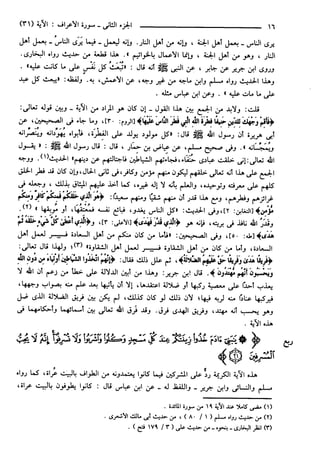 ١٦ الجزء الثاني - سورة الأعراف: الآية (٣١)
يرى الناس - بعمل أهل الجنة، وإنه من أهل النار. وإنه ليعمل - فيما يرى الناس - بعمل أهل
النار، وهو من أهل الجنة، وإنما الأعمال بالخواتيم». هذا قطعة من حديث رواه البخاري.
وروى ابن جرير عن جابر، عن النبي ﷺ أنه قال: «تُبعث كل نفس على ما كانت عليه».
وهذا الحديث رواه مسلم وابن ماجه من غير وجه، عن الأعمش، به. ولفظه: «يبعث كل عبد
على ما مات عليه». وعن ابن عباس مثله.
قلت: ولابد من الجمع بين هذا القول - إن كان هو المراد من الآية - وبين قوله تعالى:
﴿فأقم وجهك للدين حنيفا فطرة الله التي فطر الناس عليها﴾ [الروم: ٣٠]، وما جاء في الصحيحين، عن
أبي هريرة أن رسول الله ﷺ قال: «كل مولود يولد على الفطرة، فأبواه يهودانه وينصرانه
ويمجسانه». وفي صحيح مسلم، عن عياض بن حمار، قال: قال رسول الله ﷺ: «يقول
الله تعالى: إني خلقت عبادي حنفاء، فجاءتهم الشياطين فاجتالتهم عن دينهم» الحديث(١). ووجه
الجمع على هذا أنه تعالى خلقهم ليكون منهم مؤمن وكافر، في ثاني الحال، وإن كان قد فطر الخلق
كلهم على معرفته وتوحيده، والعلم بأنه لا إله غيره، كما أخذ عليهم الميثاق بذلك، وجعله في
غرائزهم وفطرهم، ومع هذا قدر أن منهم شقيا ومنهم سعيدا: ﴿هو الذي خلقكم فمنكم كافر ومنكم
مؤمن﴾ [التغابن: ٢]، وفي الحديث: «كل الناس يغدو، فبائع نفسه فمعتقها، أو موبقها»(٢).
وقدر الله نافذ في بريته، فإنه هو ﴿والذي قدر فهدى﴾ [الأعلى: ٣]، و﴿الذي أعطى كل شيء خلقه ثم
هدى﴾ [طه: ٥٠]، وفي الصحيحين: «فأما من كان منكم من أهل السعادة فسييسر لعمل أهل
السعادة، وأما من كان من أهل الشقاوة فسييسر لعمل أهل الشقاوة»(٣)، ولهذا قال تعالى:
﴿فريقا هدى وفريقا حق عليهم الضلالة﴾، ثم علل ذلك فقال: ﴿إنهم اتخذوا الشياطين أولياء من دون الله
ويحسبون أنهم مهتدون﴾. قال ابن جرير: وهذا من أبين الدلالة على خطأ من زعم أن الله لا
يعذب أحدا على معصية ركبها أو ضلالة اعتقدها، إلا أن يأتيها بعد علم منه بصواب وجهها،
فيركبها عنادا منه لربه فيها؛ لأن ذلك لو كان كذلك، لم يكن بين فريق الضلالة الذي ضل
وهو يحسب أنه مهتد، وفريق الهدى فرق. وقد فرق الله تعالى بين أسمائهما وأحكامهما في
هذه الآية.
ربع
﴿يا بني آدم خذوا زينتكم عند كل مسجد وكلوا واشربوا ولا تسرفوا إنه لا يحب
المسرفين ٣١﴾
هذه الآية الكريمة رد على المشركين فيما كانوا يعتمدونه من الطواف بالبيت عراة، كما رواه
مسلم والنسائي وابن جرير - واللفظ له - عن ابن عباس قال: كانوا يطوفون بالبيت عراة،
(١) مضى كاملا عند الآية ١٩ من سورة المائدة.
(٢) من حديث رواه مسلم (١ / ٨٠)، من حديث أبي مالك الأشعري.
(٣) انظر البخاري - بنحوه - من حديث علي (٣ / ١٧٩ فتح).